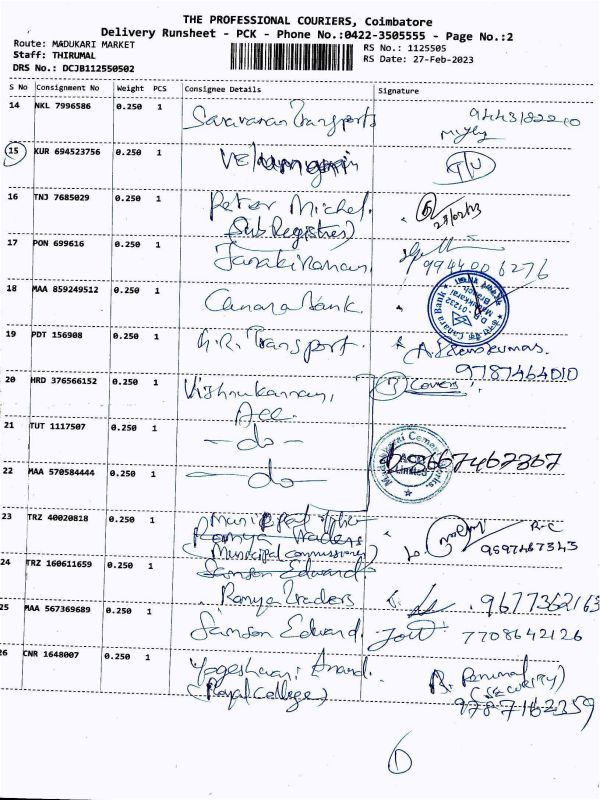 THE PROFESSIONAL COURIERS, Coimbatore
Delivery Runsheet - PCK - Phone No.:0422-3505555 - Page No.:2
Route: MADUKARI MARKET
Staff: THIRUMAL
DRS No.: DCJB112550502
RS No.: 1125505
RS Date: 27-Feb-2023
S No Consignment No Weight PCS Consignee Details Signature
14 NKL 7996586 0.250 1 Saravanan Transports 9443182210
15 KUR 694523756 0.250 1
16 TNJ 7685029 0.250 1 Peter Michel.
(Sub Registrer)
17 PON 699616 0.250 1 Janakiraman, 9944006276
18 MAA 859249512 0.250 1 Canara Bank. Canara Bank
19 PDT 156908 0.250 1 G.R. Transport.
9787464010
20 HRD 376566152 0.250 1 Vishnukannan, (3) Covers
Acc.
21 TUT 1117507 0.250 1 -do-
22 MAA 570584444 0.250 1 -do-
23 TRZ 40020818 0.250 1
Ramya Traders
(Municipal commissioner) 9597487343
24 TRZ 160611659 0.250 1 Samson Edward
Ramya Traders 9677362163
25 MAA 567369689 0.250 1 Samson Edward. 7708642126
26 CNR 1648007 0.250 1 Yogeshwari Anand.
(Royal College) (security)
9787162359